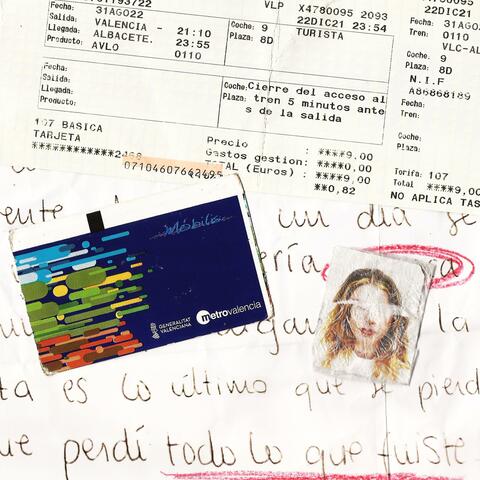 VLP X4780095 2093
Fecha: 31AGO22 22DIC21 23:54
Salida: VALENCIA - 21:10 Coche: 9 TURISTA
Llegada: ALBACETE. 23:55 Plaza: 8D
Producto: AVLO 0110
Fecha:
Salida: Coche: Cierre del acceso al
Llegada: Plaza: tren 5 minutos ante
Producto: s de la salida
107 BASICA Precio : ****9,00
TARJETA Gastos gestion: ****0,00
TOTAL (Euros) : ****9,00
**0,82
22DIC21
Fecha:
31AGO
Tren: VLC-AL
Coche: 9
Plaza: 8D
N.I.F
A86868189
Fecha:
Tren:
Coche:
Plaza:
Tarifa: 107
Total ****9,
NO APLICA TAS
Móbilis
GENERALITAT
VALENCIANA
metrovalencia
un dia se
ería
la
ta es lo último que se pierd
ue perdí todo lo que fuiste